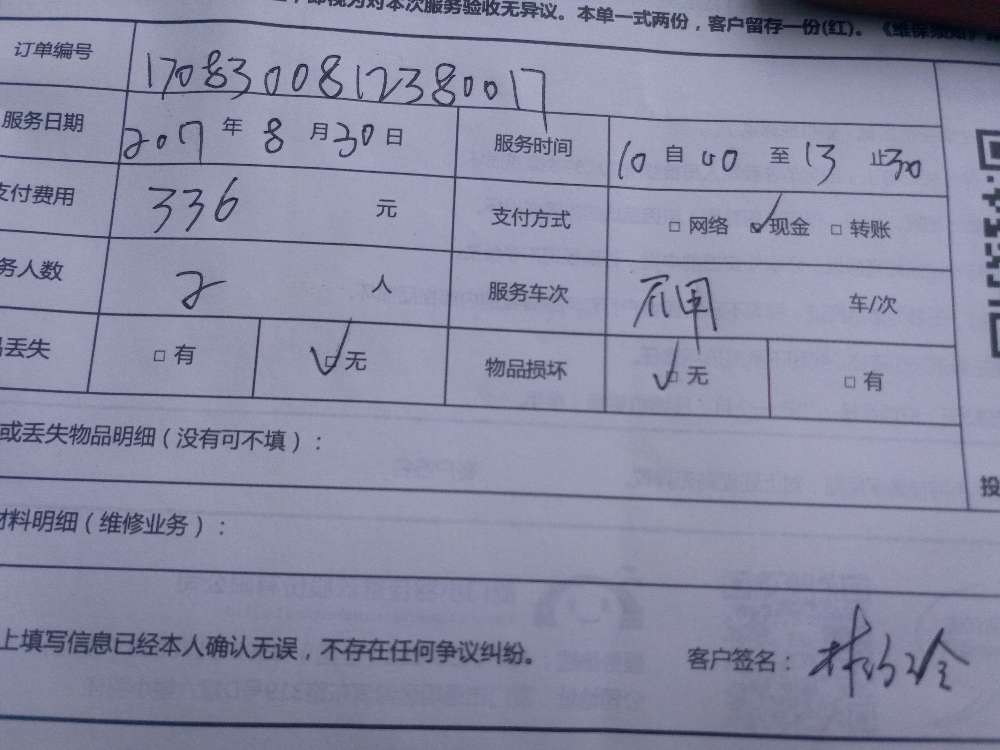 即视为对本次服务验收无异议。本单一式两份，客户留存一份(红)。
订单编号 1708300812380017
服务日期 2017 年 8 月 30 日 服务时间 10 自 00 至 13 止 30
支付费用 336 元 支付方式 □ 网络 ☑ 现金 □ 转账
务人数 2 人 服务车次 不用 车/次
丢失 □ 有 ☑ 无 物品损坏 ☑ 无 □ 有
或丢失物品明细（没有可不填）：
投
材料明细（维修业务）：
上填写信息已经本人确认无误，不存在任何争议纠纷。 客户签名：